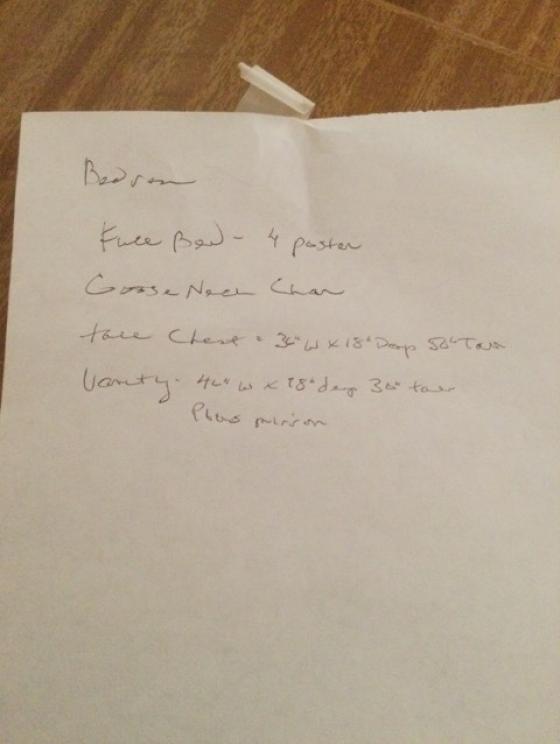 Bedroom
Full Bed - 4 poster
Goose Neck Chair
tall Chest - 36" W x 18" Deep 50" Tall
Vanity - 46" W x 18" deep 30" tall
Plus mirror